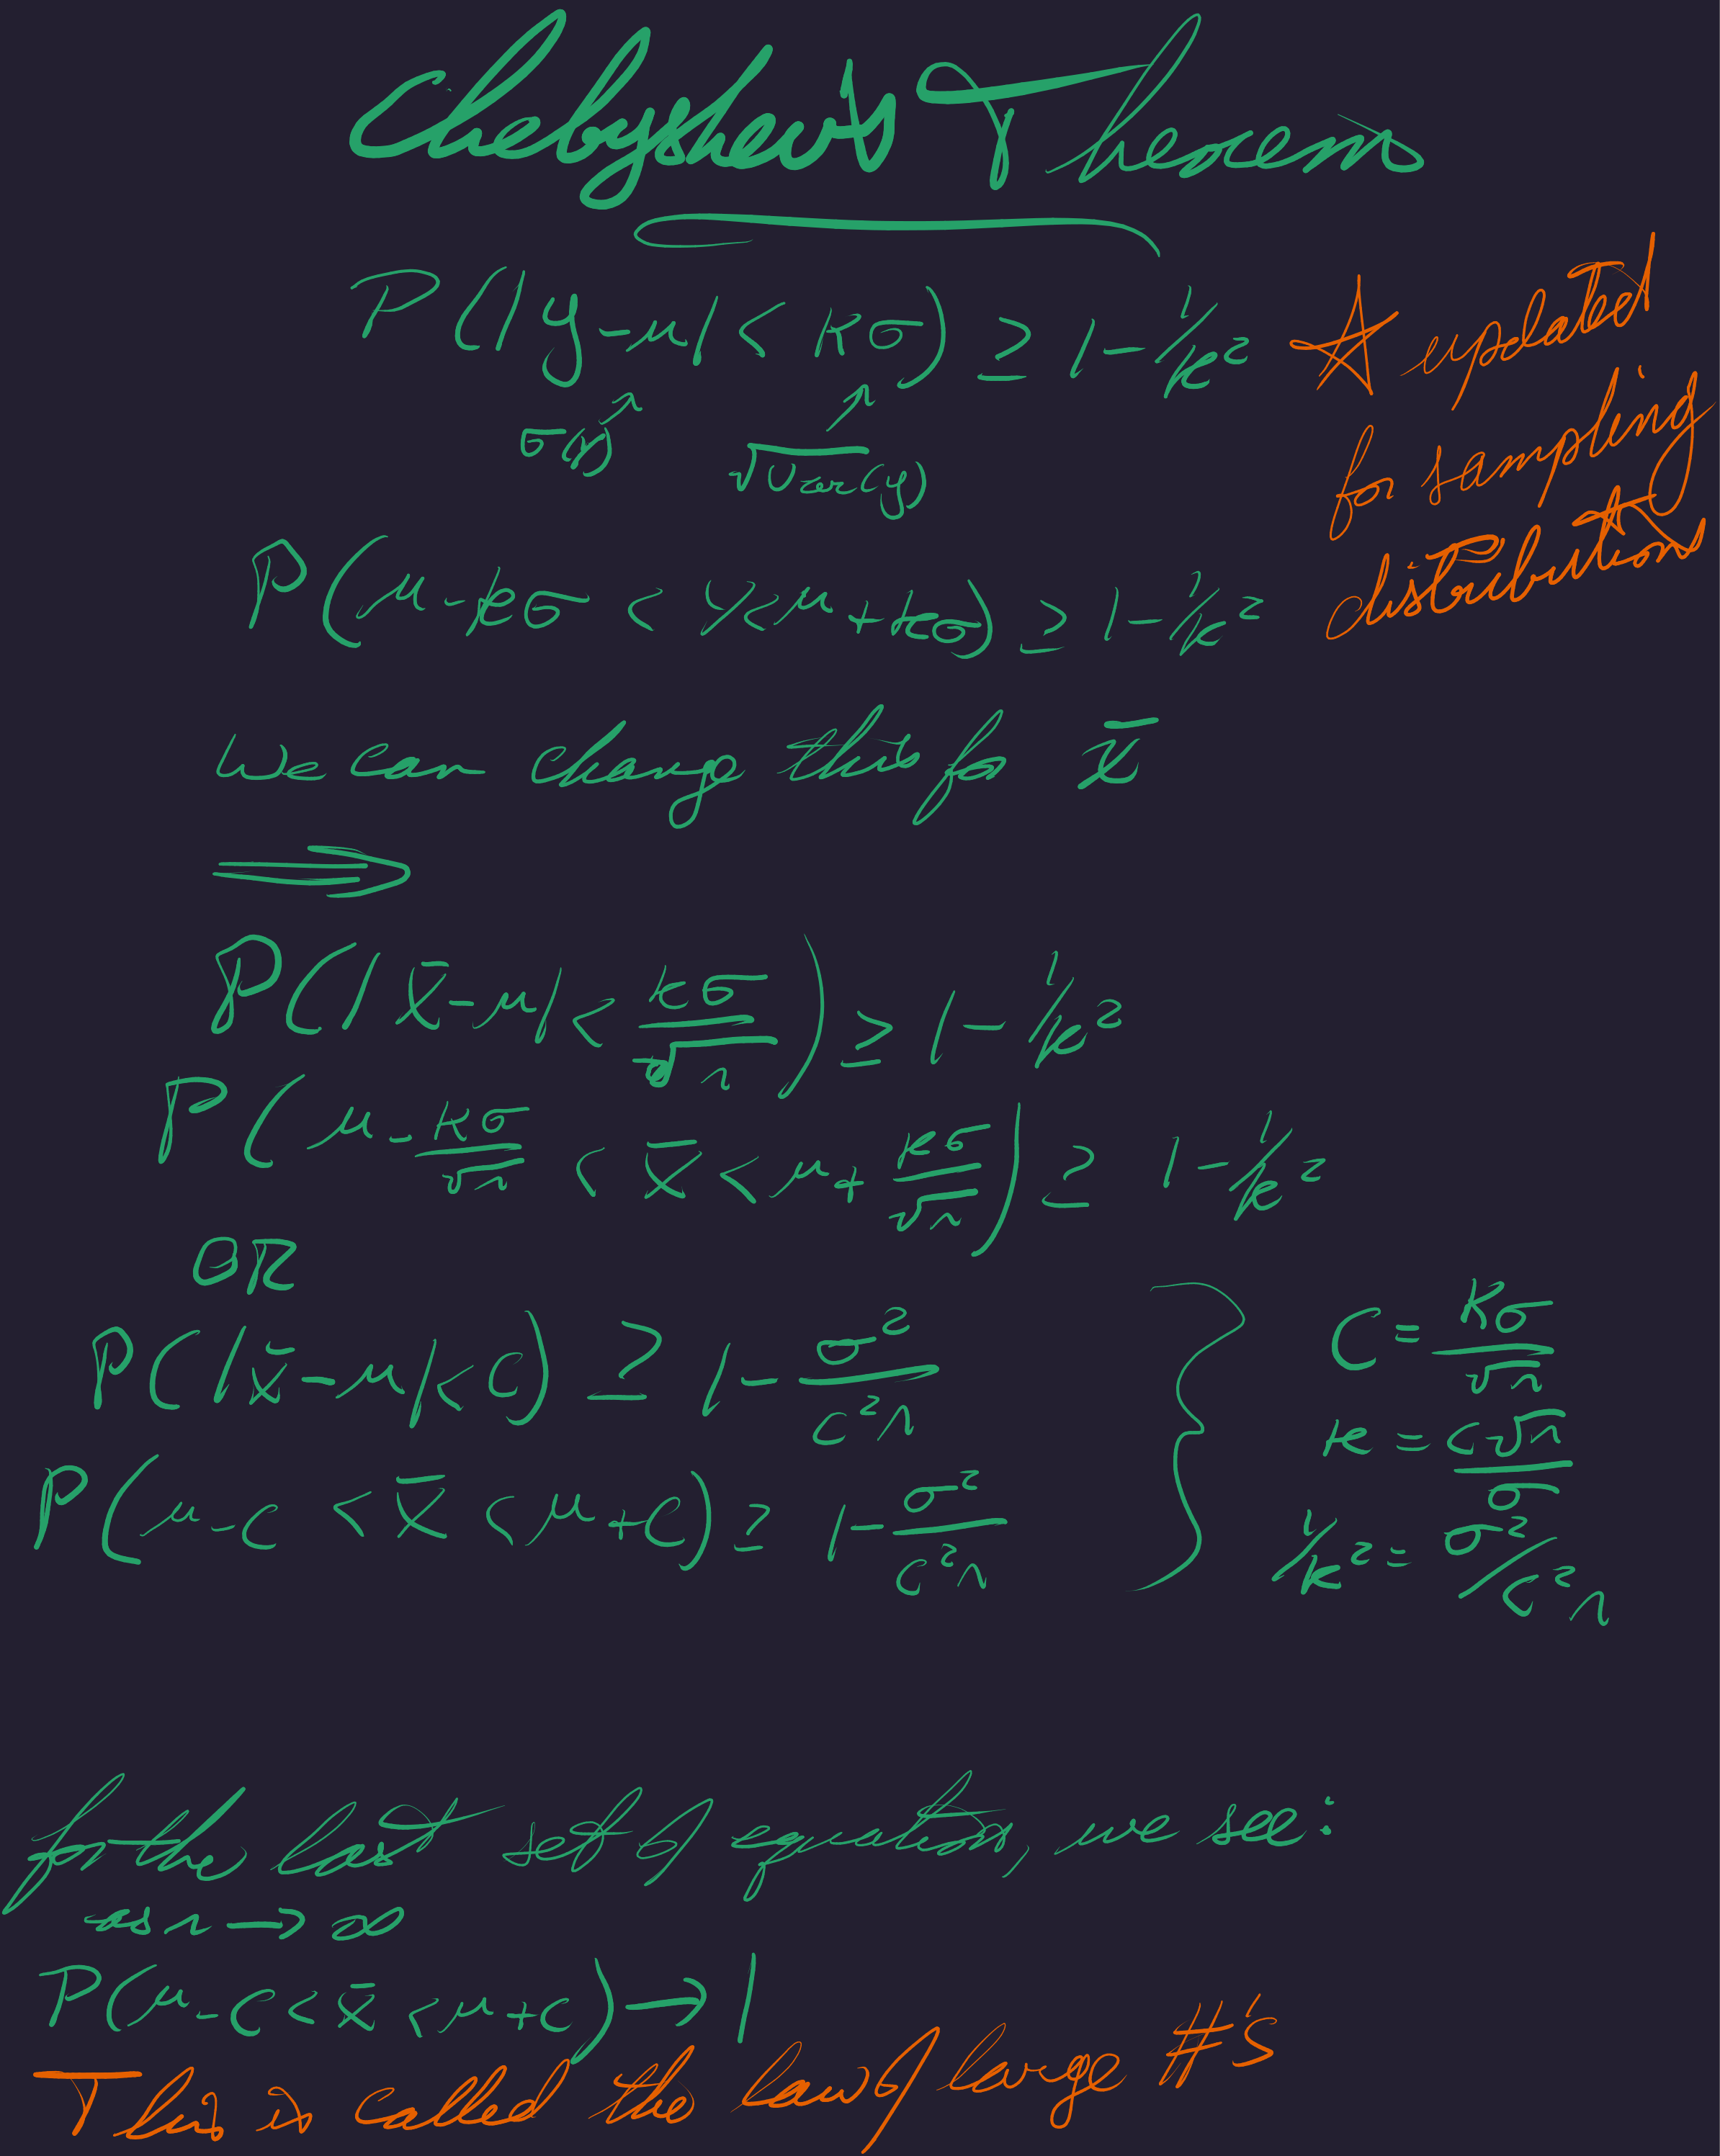 Chebyshev's Theorem
P(|y-μ| < kσ) ≥ 1 - 1/k²
☆ updated
for sampling
distributions
√Var(y)
P(μ - kσ < y < μ + kσ) ≥ 1 - 1/k²
we can change this for x̄
⟹
P(|x̄-μ| < kσ/√n) ≥ 1 - 1/k²
P(μ - kσ/√n < x̄ < μ + kσ/√n) ≥ 1 - 1/k²
OR
P(|x̄-μ| < C) ≥ 1 - σ²/c²n
P(μ - c < x̄ < μ + c) ≥ 1 - σ²/c²n
C = kσ/√n
k = c√n/σ
1/k² = σ²/c²n
for the last set of equations, we see:
as n → ∞
P(μ - c < x̄ < μ + c) → 1
This is called the law of large #'s